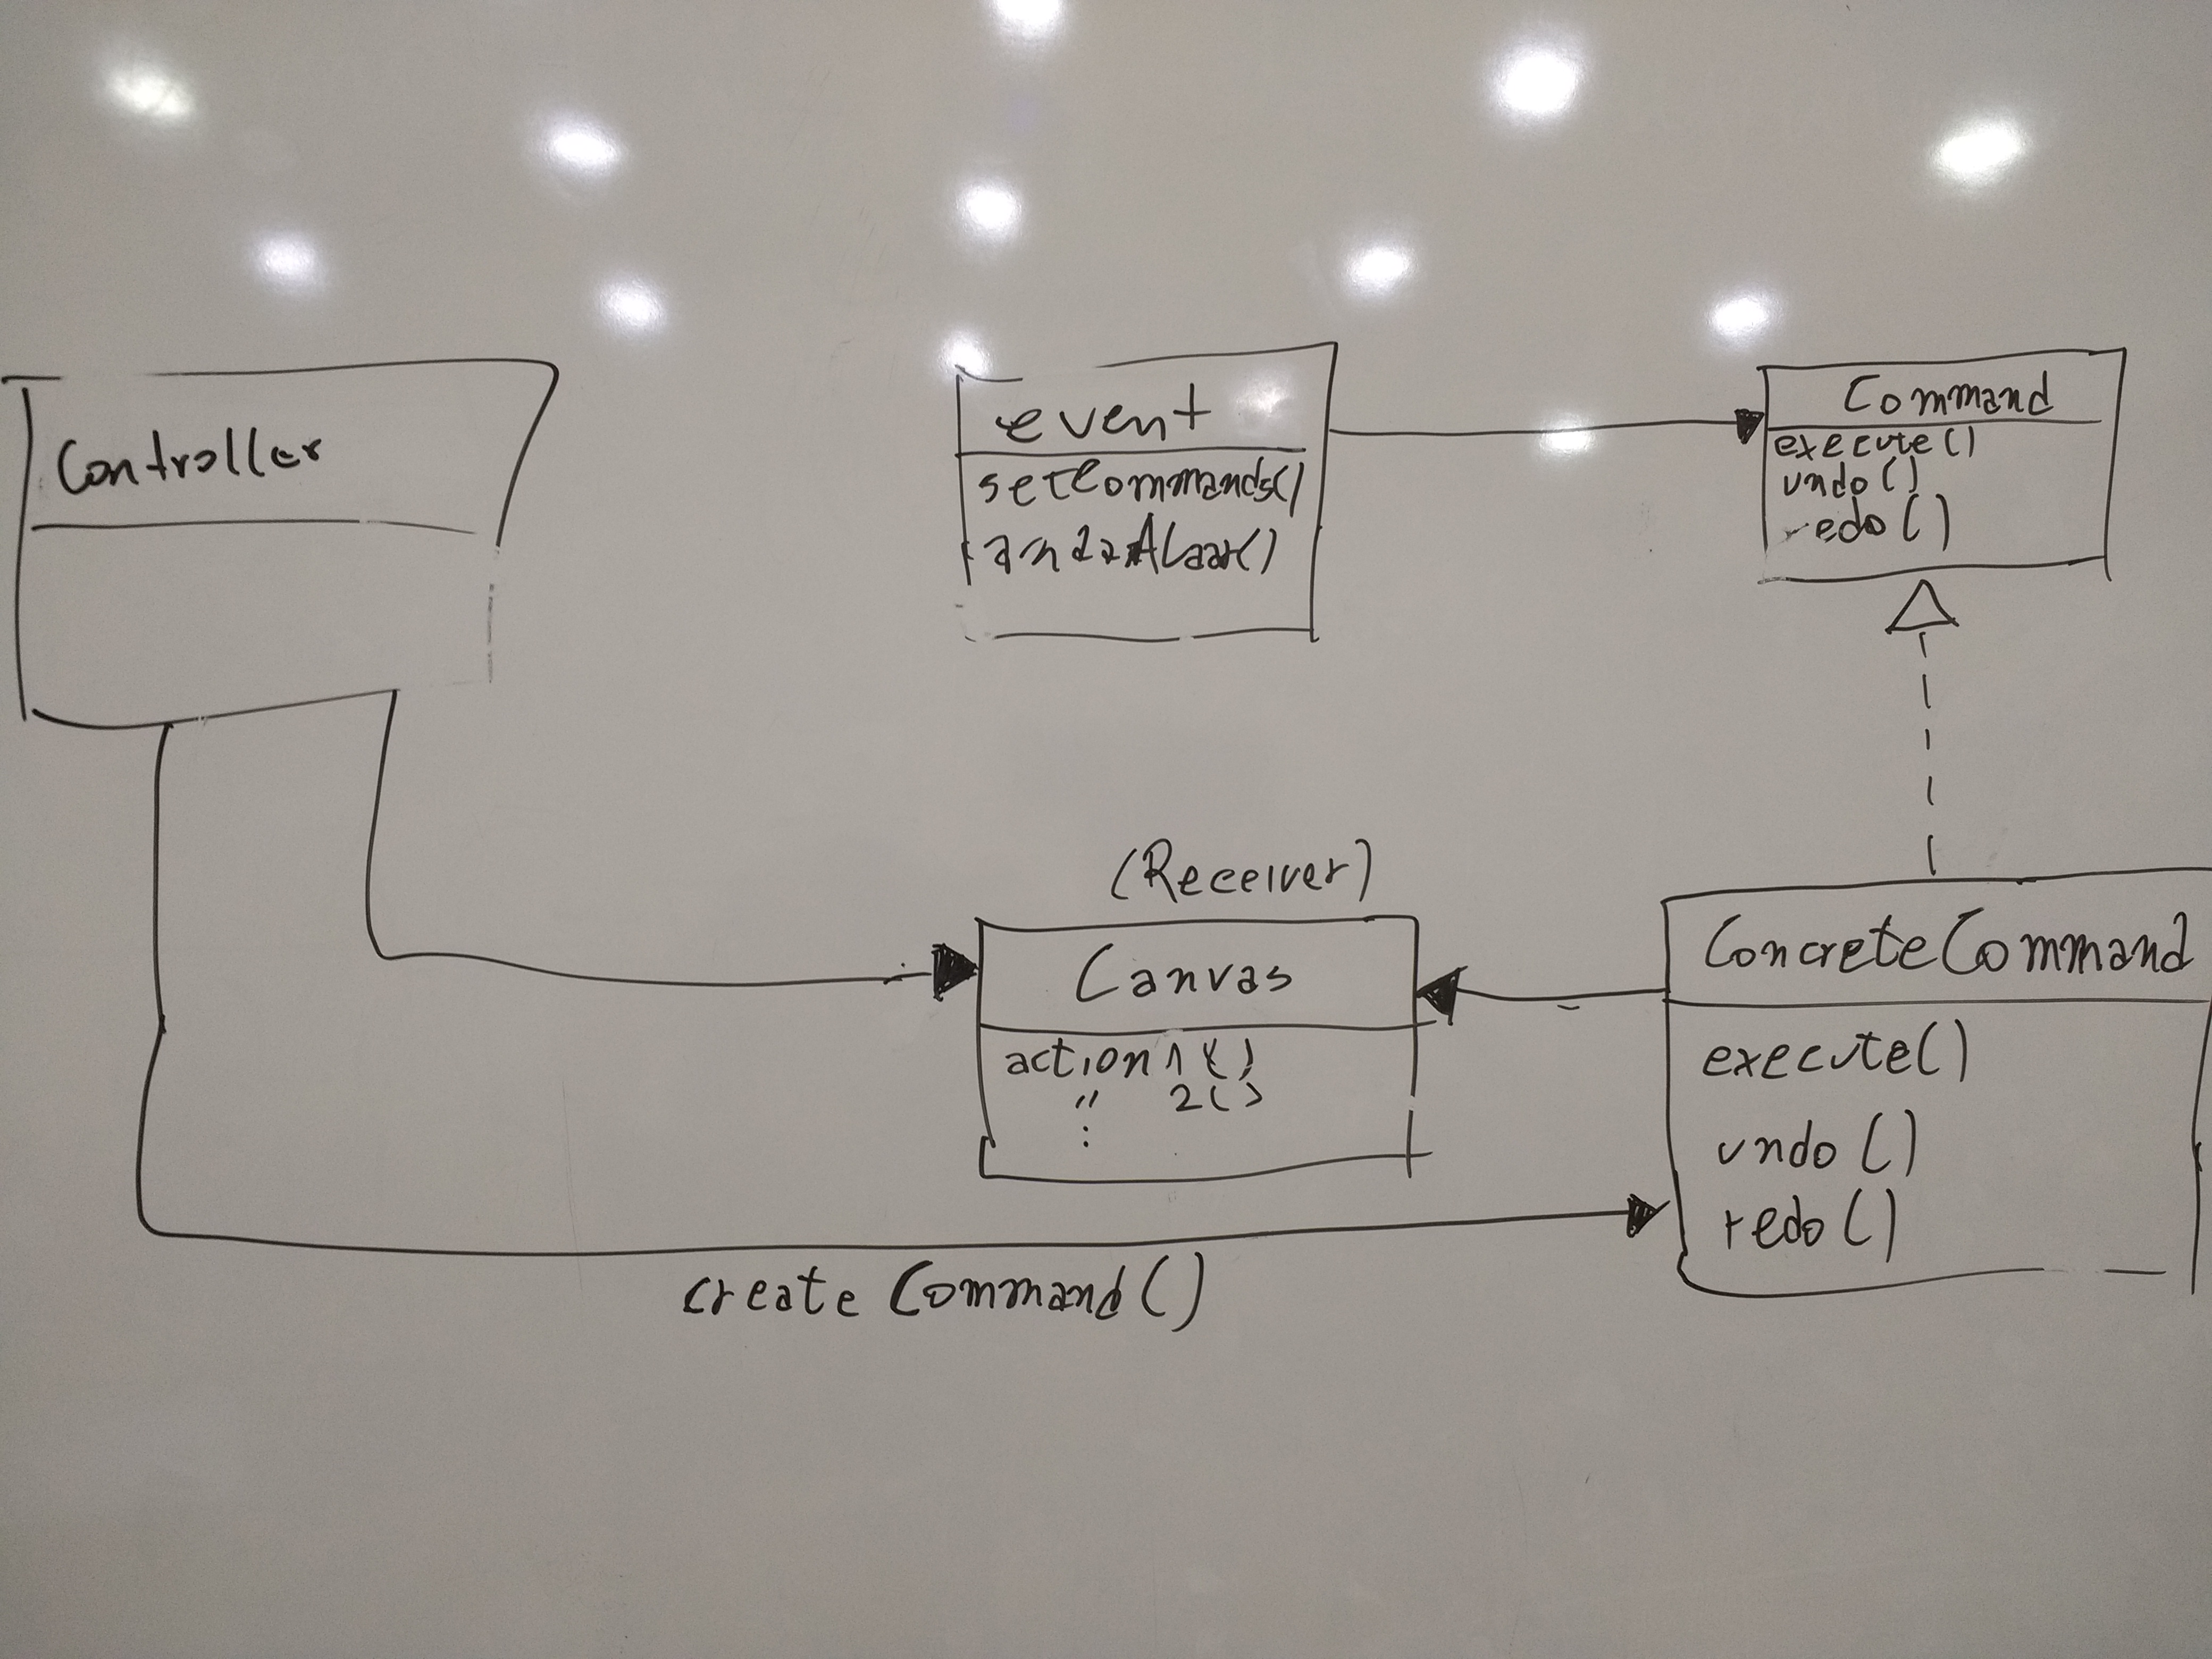 Controller
event
setCommands()
Command
execute()
undo()
redo()
(Receiver)
Canvas
action 1 ()
" 2()
:
ConcreteCommand
execute()
undo()
redo()
create Command()